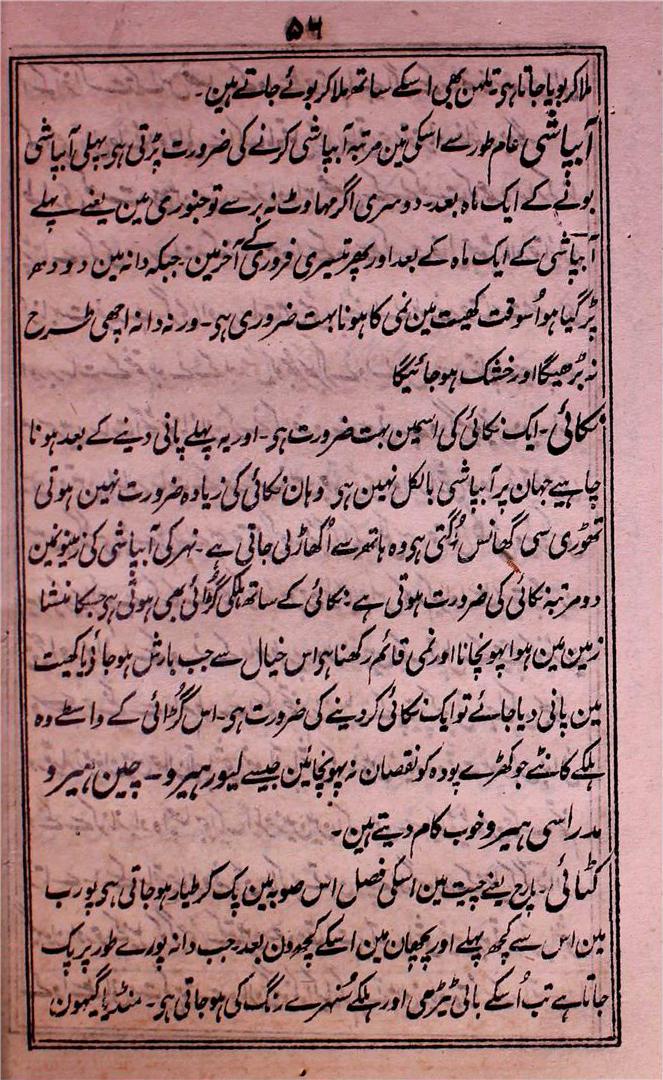 ۵۶
ملا کر بویا جاتا ہی تلہن بھی اسکے ساتھ ملا کر بوئے جاتے ہین۔
آبپاشی عام طور سے اسکی تین مرتبہ آبپاشی کرنے کی ضرورت پڑتی ہی۔ پہلی آبپاشی
بونے کے ایک ماہ بعد۔ دوسری اگر مہاوٹ نہ برسے تو جنوری مین یعنے پہلے
آبپاشی کے ایک ماہ کے بعد اور پھر تیسری فروری کے آخر مین۔ جبکہ دانہ مین دودھ
پڑ گیا ہو اُسوقت کھیت مین نمی کا ہونا بہت ضروری ہی۔ ورنہ دانہ اچھی طرح
نہ بڑھیگا اور خشک ہو جائیگا
نکائی۔ ایک نکائی کی اسمین بہت ضرورت ہی۔ اور یہ پہلے پانی دینے کے بعد ہونا
چاہیے جہان پر آبپاشی بالکل نہین ہی وہان نکائی کی زیادہ ضرورت نہین ہوتی
تھوڑی سی گھانس اُگتی ہی وہ ہاتھ سے اُکھاڑ لی جاتی ہے۔ نہر کی آبپاشی کی زمینونمین
دو مرتبہ نکائی کی ضرورت ہوتی ہے۔ نکائی کے ساتھ ہلکی گڑائی بھی ہوتی ہی جسکا منشا
زمین مین ہوا پہونچانا اور نمی قائم رکھنا ہی اس خیال سے جب بارش ہو جائے یا کھیت
مین پانی دیا جائے تو ایک نکائی کر دینے کی ضرورت ہی۔ اس گڑائی کے واسطے وہ
ہلکے کانٹے جو کھڑے پودہ کو نقصان نہ پہونچائین جیسے لیور ہیرو۔ چین ہیرو
مدراسی ہیرو خوب کام دیتے ہین۔
کٹائی۔ مارچ یعنے چیت مین اسکی فصل اس صوبہ مین پک کر طیار ہو جاتی ہی پورب
مین اس سے کچھ پہلے اور پچھان مین اسکے کچھ دن بعد۔ جب دانہ پورے طور پر پک
جاتا ہے تب اُسکے بالی ٹیڑھی اور ہلکے سُنہرے رنگ کی ہو جاتی ہی۔ منڈیا گیہون